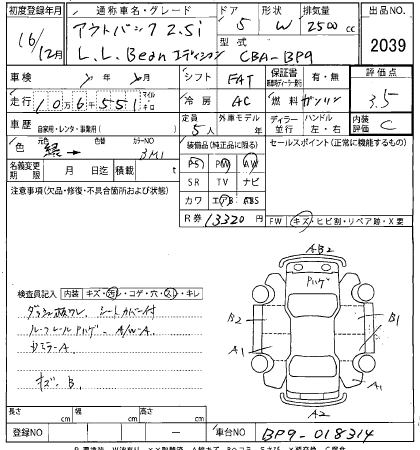 初度登録年月 通称車名・グレード ドア 形状 排気量 出品NO.
16/12月 アウトバック 2.5i 5 W 2500 cc 2039
L.L.Bean エディション 型式 CBA-BP9
車検 年 月 シフト FAT 保証書 有・無 評価点
走行 10万6千551 冷房 AC 燃料 ガソリン 3.5
車歴 自家用・レンタ・事業用( ) 定員 5人 外車モデル 年 ディーラー 並行 ハンドル 左・右 内装評価 C
色 元色 緑 → 色替 カラーNO 装備品(純正品に限る) セールスポイント(正常に機能するもの)
名義変更期限 月 日迄 積載 t PS PW AW
SR TV ナビ
注意事項(欠品・修復・不具合箇所および状態) カワ エアB ABS
R券 13320 円 FW キズ・ヒビ割・リペア跡・X要
検査員記入 内装 キズ・汚レ・コゲ・穴・スレ・キレ
ダッシュ板ワレ シートカバー付
ルーフレールPハゲ A/W-A
ドミラーA
キズ B
AB2
Pハゲ
B2 B1
A1 A1
A2
長さ cm 幅 cm 高さ cm
登録NO 車台NO BP9-018314